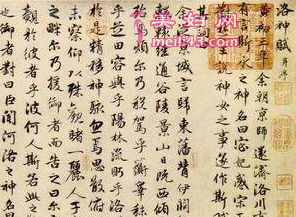 洛神賦 并序
黃初三年余朝京師還濟洛川
有言斯水之神名曰宓妃感宋
王說神女之事遂作斯
余從京城言歸東藩背伊闕
轅經通谷陵景山日既西傾
殆馬煩爾乃稅駕乎蘅皋秣
乎芝田容與乎陽林流眄乎洛
於是精移神駭忽焉思散俯
未察仰以殊觀睹一麗人
之畔爾乃援御者而告之曰爾
覿於彼者乎彼何人斯若此之
也御者對曰臣聞河洛之神名